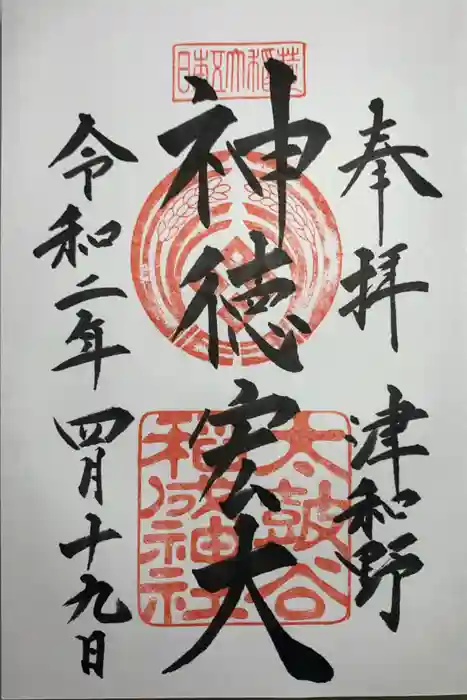 奉拝　津和野
日本五大稲荷
神徳宏大
太皷谷
稲成神社
令和二年四月十九日